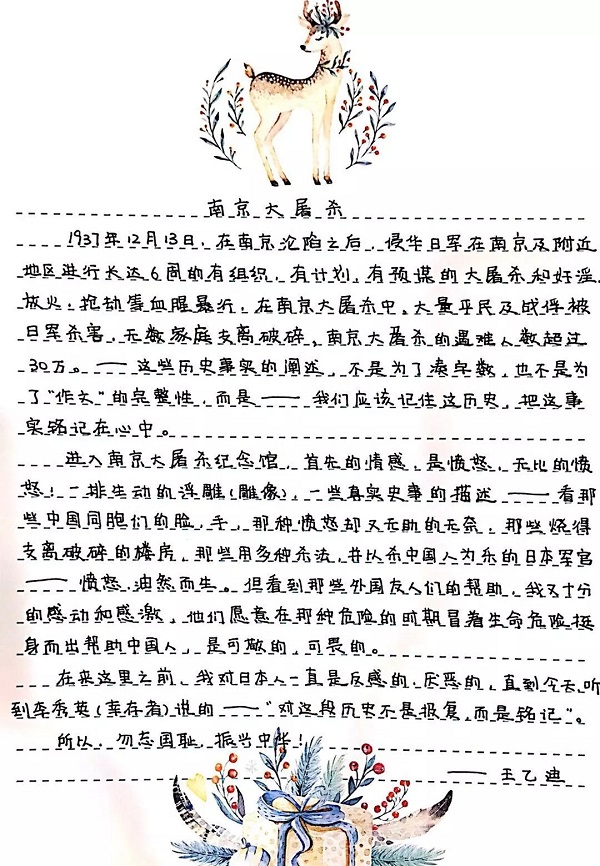 南京大屠杀
1937年12月13日,在南京沦陷之后,侵华日军在南京及附近
地区进行长达6周的有组织,有计划,有预谋的大屠杀和奸淫,
放火,抢劫等血腥暴行,在南京大屠杀中,大量平民及战俘被
日军杀害,无数家庭支离破碎,南京大屠杀的遇难人数超过
30万。——这些历史事实的阐述,不是为了凑字数,也不是为
了"作文"的完整性,而是——我们应该记住这历史,把这事
实铭记在心中。
进入南京大屠杀纪念馆,首先的情感,是愤怒,无比的愤
怒!一排生动的浮雕(雕像),一些真实史事的描述——看那
些中国同胞们的脸,手,那种愤怒却又无助的无奈,那些烧得
支离破碎的楼房,那些用多种杀法,并以杀中国人为乐的日本军官
——愤怒,油然而生。但看到那些外国友人们的帮助,我又十分
的感动和感激,他们愿意在那种危险的时期冒着生命危险挺
身而出帮助中国人,是可敬的,可畏的。
在来这里之前,我对日本人一直是反感的,厌恶的,直到今天,听
到李秀英(幸存者)说的——"对这段历史不是报复,而是铭记"。
所以,勿忘国耻,振兴中华!
——王乙迪